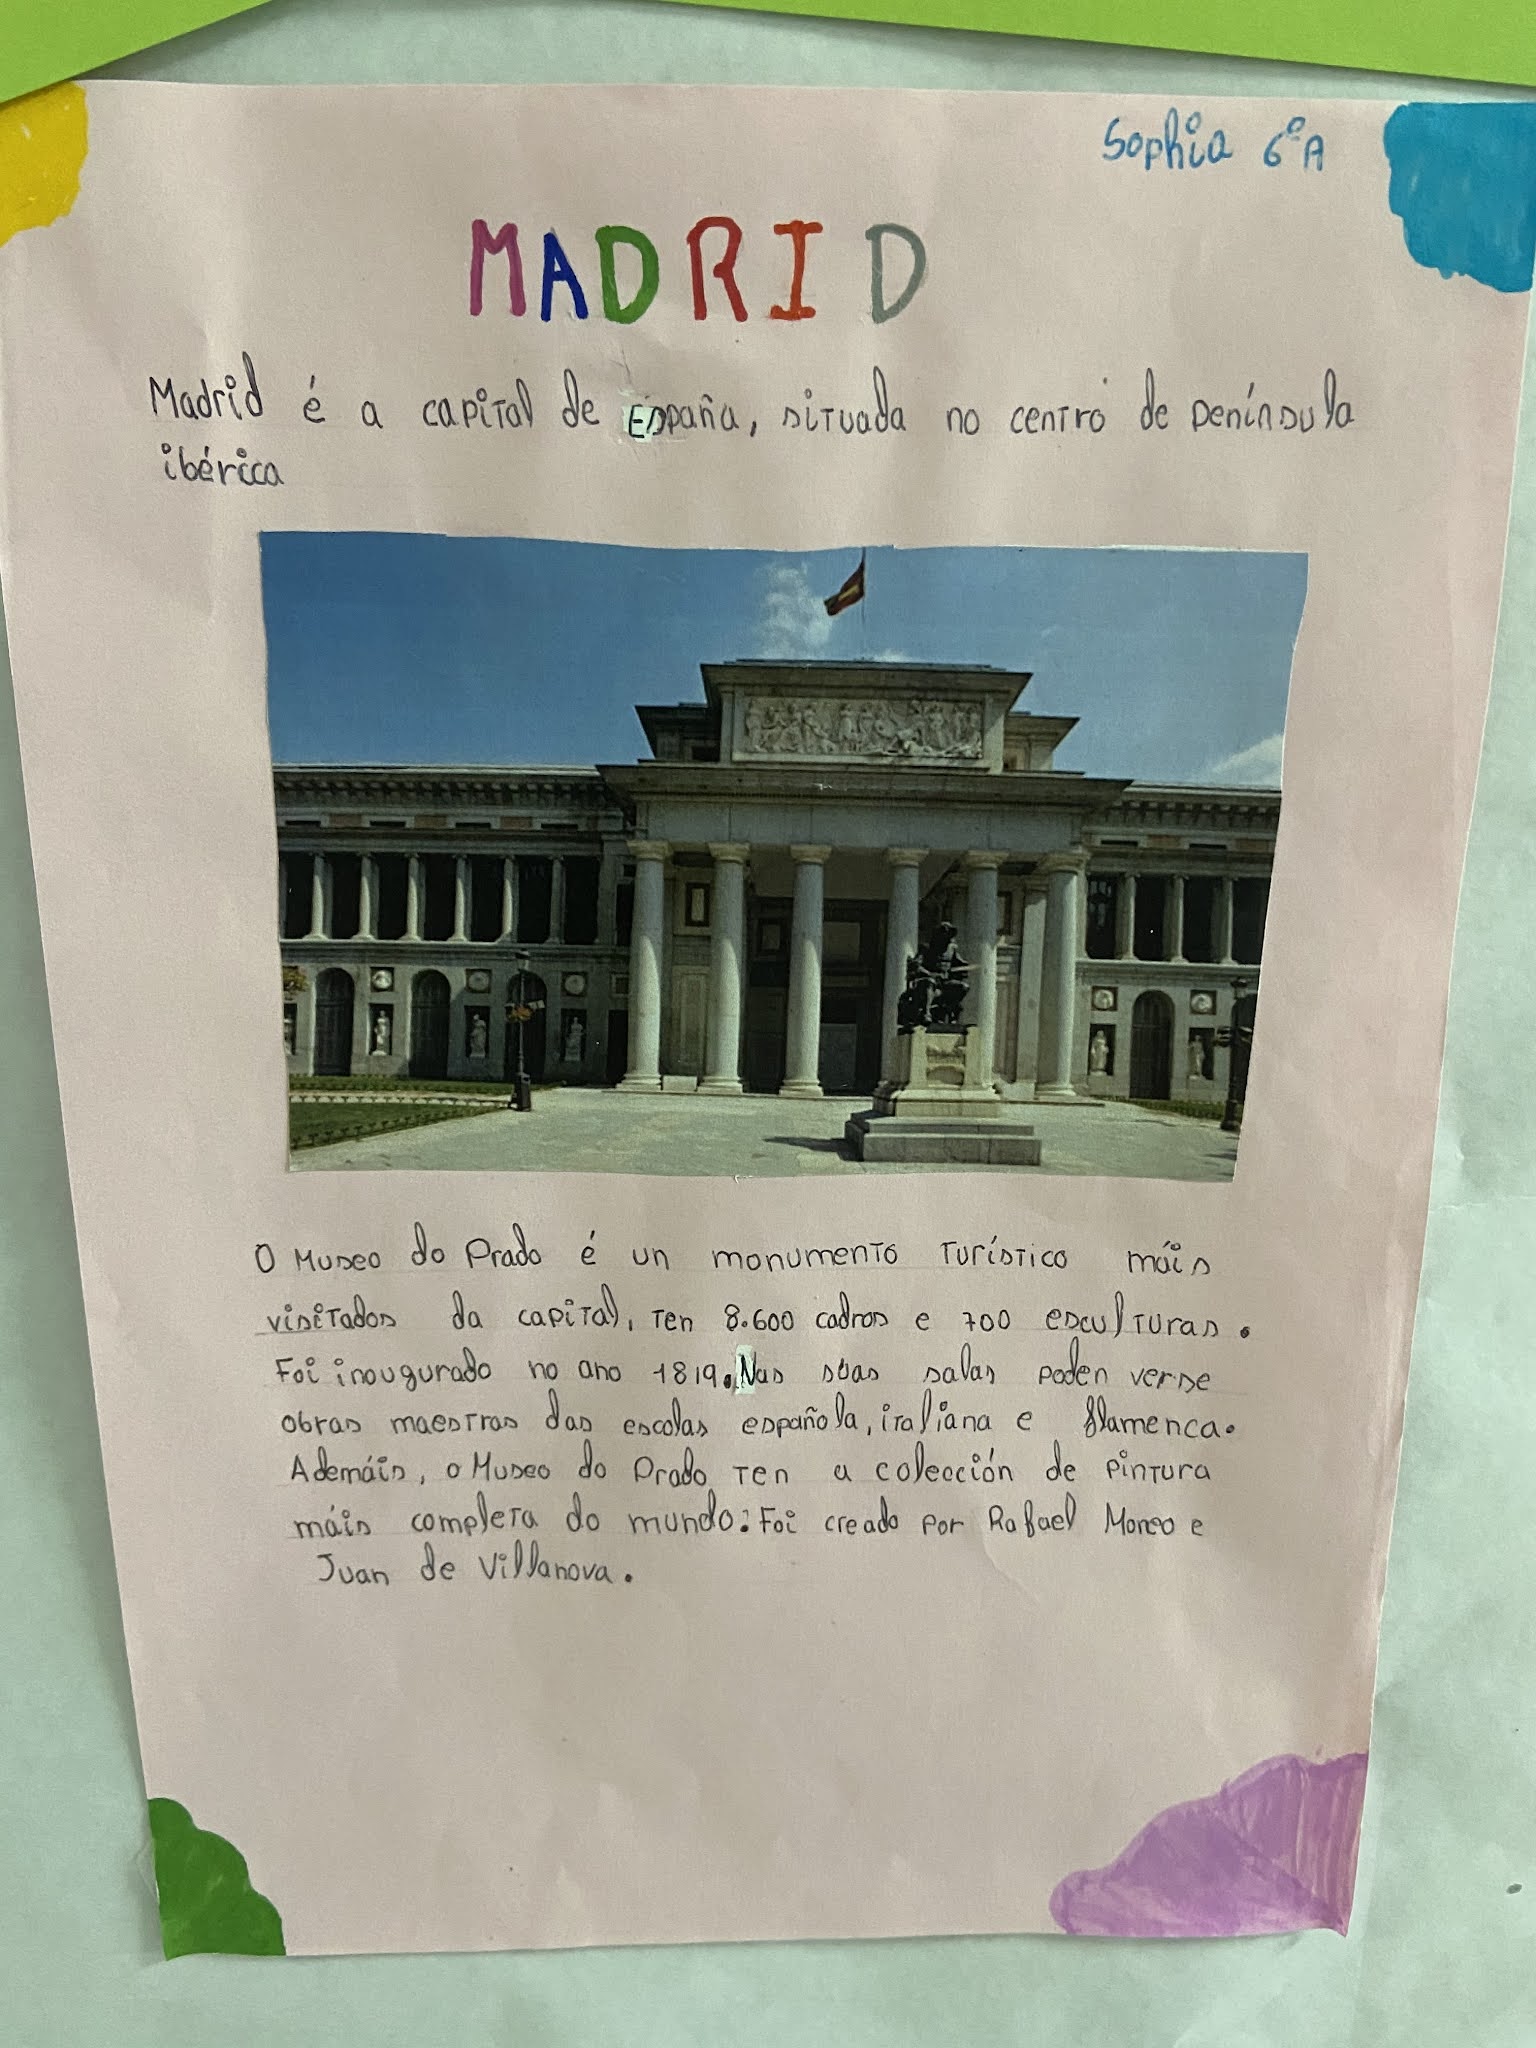 Sophia 6ºA
MADRID
Madrid é a capital de España, situada no centro de península
ibérica
O Museo do Prado é un monumento turístico máis
visitados da capital, ten 8.600 cadros e 700 esculturas.
Foi inaugurado no ano 1819. Nas súas salas poden verse
obras maestras das escolas española, italiana e flamenca.
Ademáis, o Museo do Prado ten a colección de pintura
máis completa do mundo. Foi creado por Rafael Moneo e
Juan de Villanova.